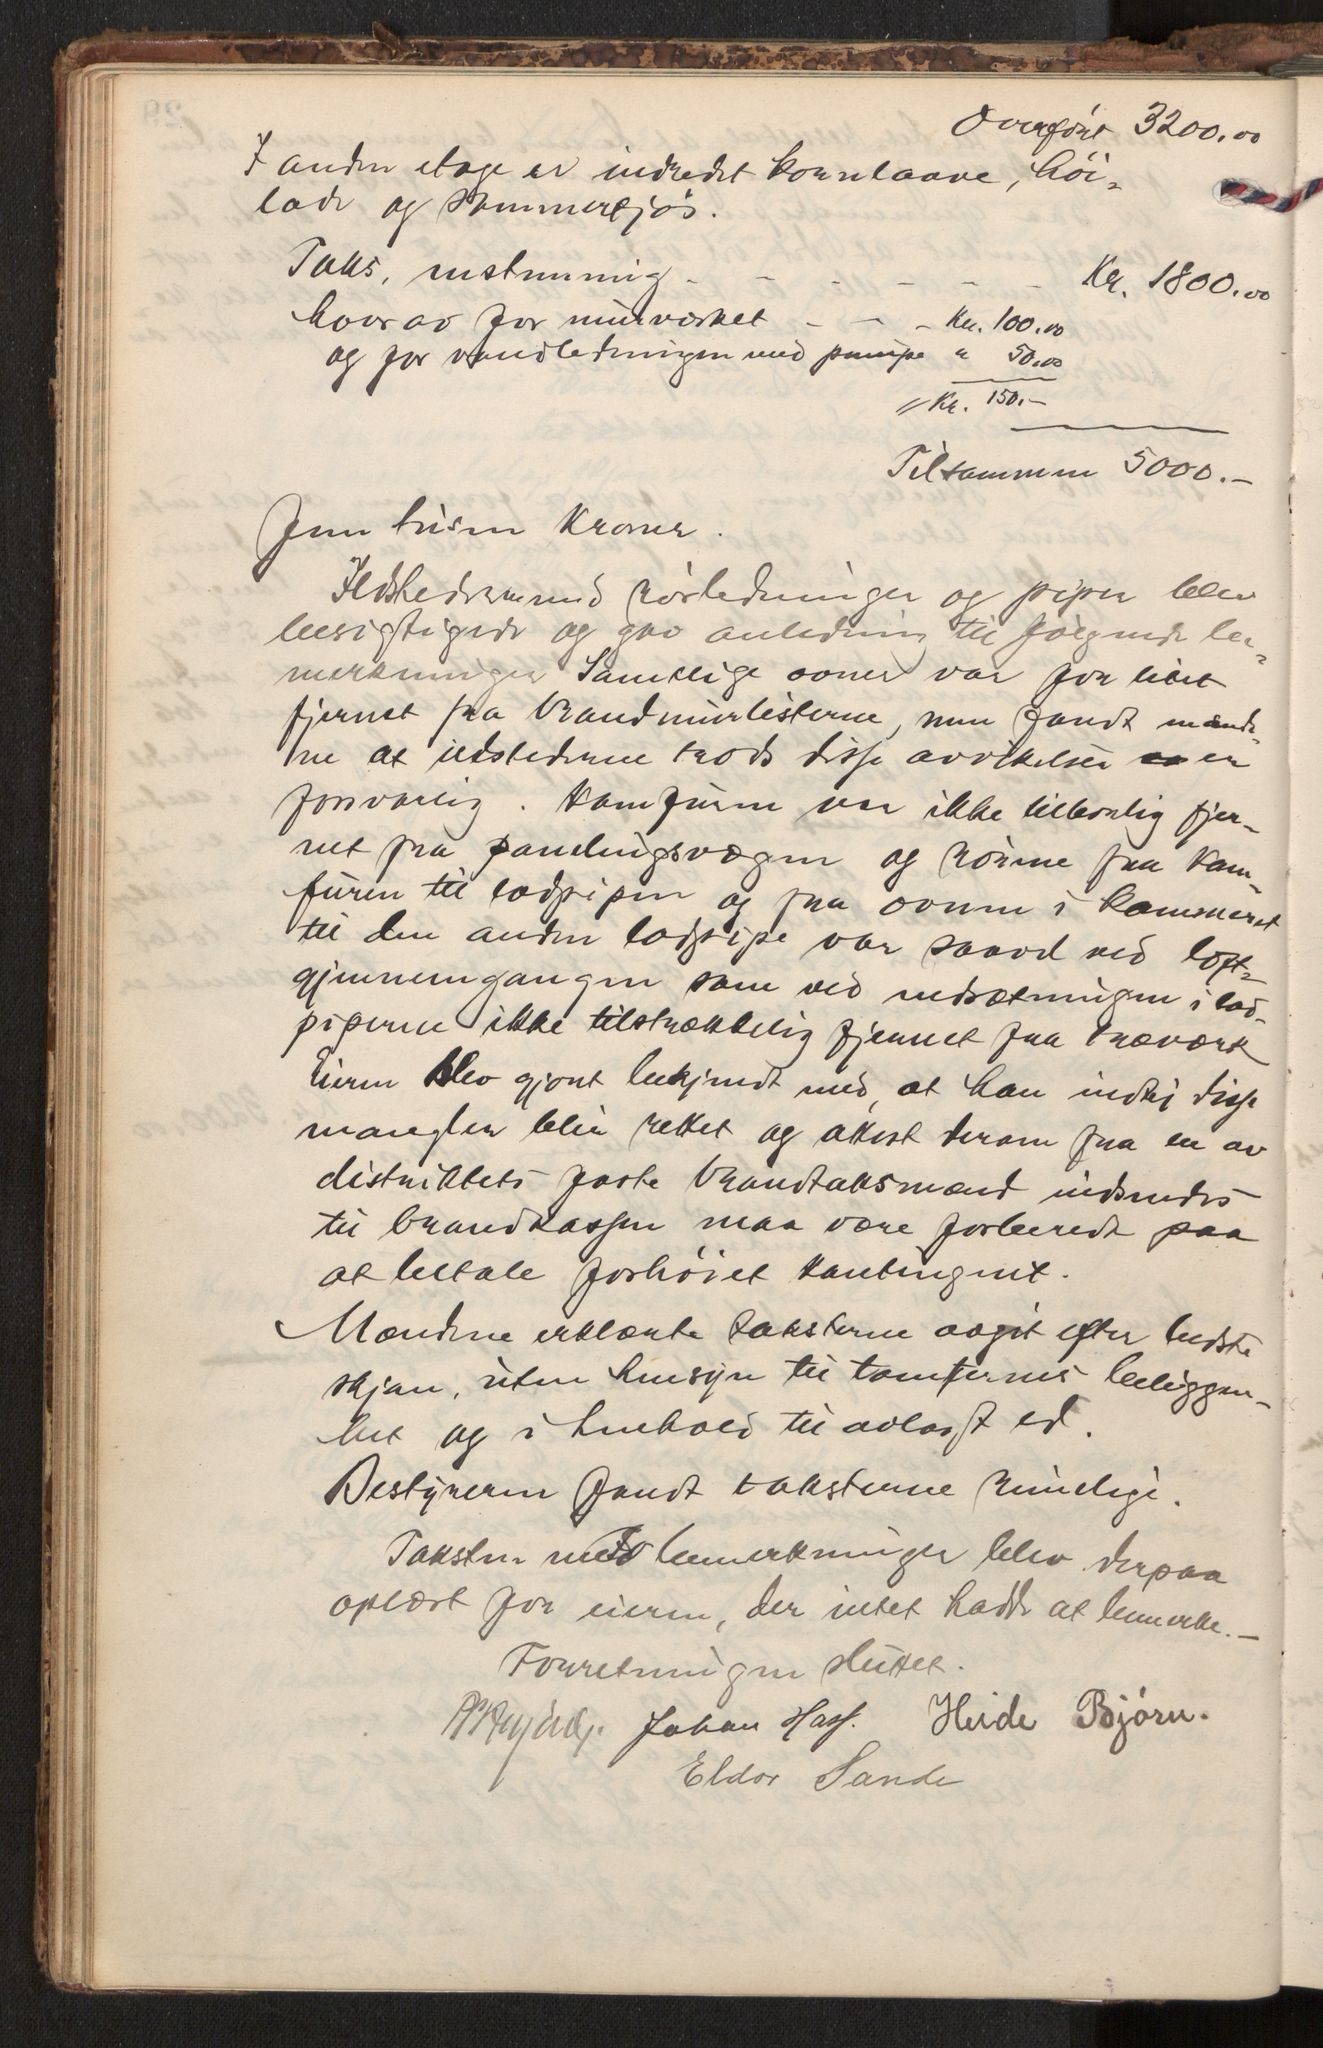 Overført 3200.00
I anden etage er indredet kornlaave, höi-
lade og sommerfjös.
Taks, nystemning - - - - - - Kr. 1800.00
hvorav for murverket - - - Kr. 100.00
og for vandledningen med pumpe " 50.00
// Kr. 150.-
Tilsammen 5000.-
Fem tusen Kroner.
Ildstederne med rörledninger og piper blev
besigtigede og gav anledning til fölgende be-
merkninger Samtlige ovner var for litet
fjernet fra brandmurlisterne, men fandt mænde-
ne at ildstederne trods disse avvikelser er
forsvarlig. Komfuren var ikke tilbörlig fjer-
net fra panelingsvægen og rörene fra kom-
furen til lodpipen og fra ovnen i kammerset
til den anden lodpipe var saavel ved loft-
gjennemgangen som ved indsætningen i lod-
piperne ikke tilstrækkelig fjernet fra træværk
Eieren blev gjort bekjendt med, at han indtil disse
mangler blir rettet og attest derom fra en av
distriktets faste brandtaksmænd indsendes
til brandkassen maa være forberedt paa
at betale forhöiet kontingent.
Mændene erklærte taksterne avgit efter bedste
skjön, uten hensyn til tomternes beliggen-
het og i henhold til avlagt ed.
Bestyreren fandt taksterne rimelige.
Taksten med bemerkninger blev derpaa
oplæst for eieren, der intet hadde at bemerke.-
Forretningen sluttet.
Johan Hass. Heide Bjørn.
Eldor Sande